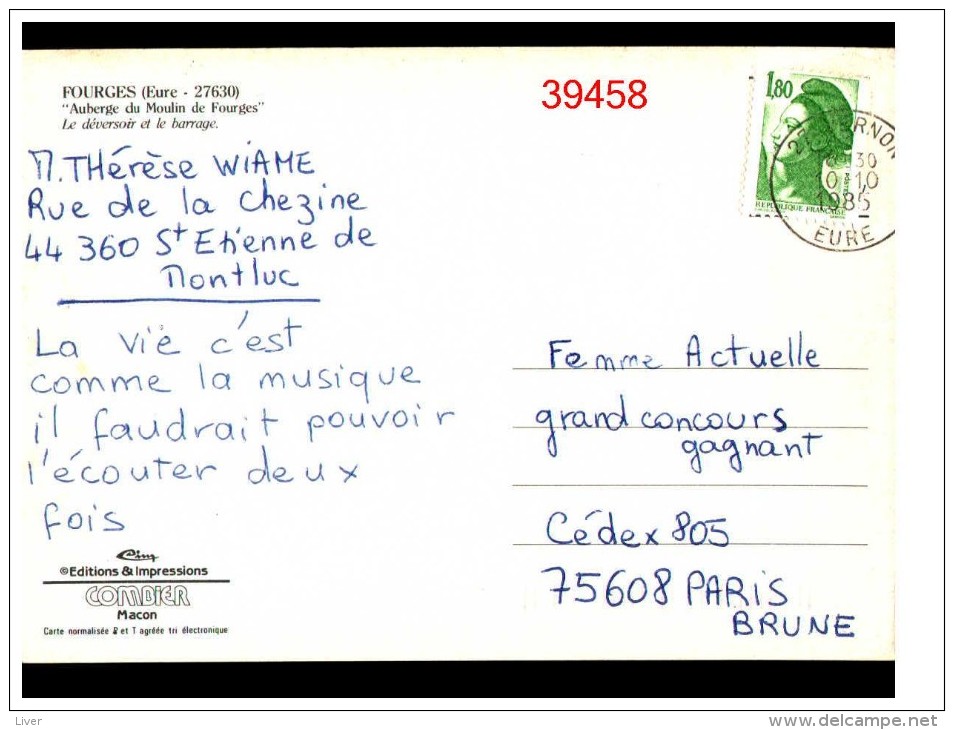 FOURGES (Eure - 27630)
"Auberge du Moulin de Fourges"
Le déversoir et le barrage.
39458
1,80
REPUBLIQUE FRANÇAISE
30
10-10
1985
EURE
M. THérèse WIAME
Rue de la Chezine
44 360 St Etienne de
Montluc
La vie c'est
comme la musique
il faudrait pouvoir
l'écouter deux
fois
Femme Actuelle
grand concours
gagnant
Cédex 805
75608 PARIS
BRUNE
©Editions & Impressions
COMBIER
Macon
Carte normalisée R et T agréée tri électronique
Liver
www.delcampe.net